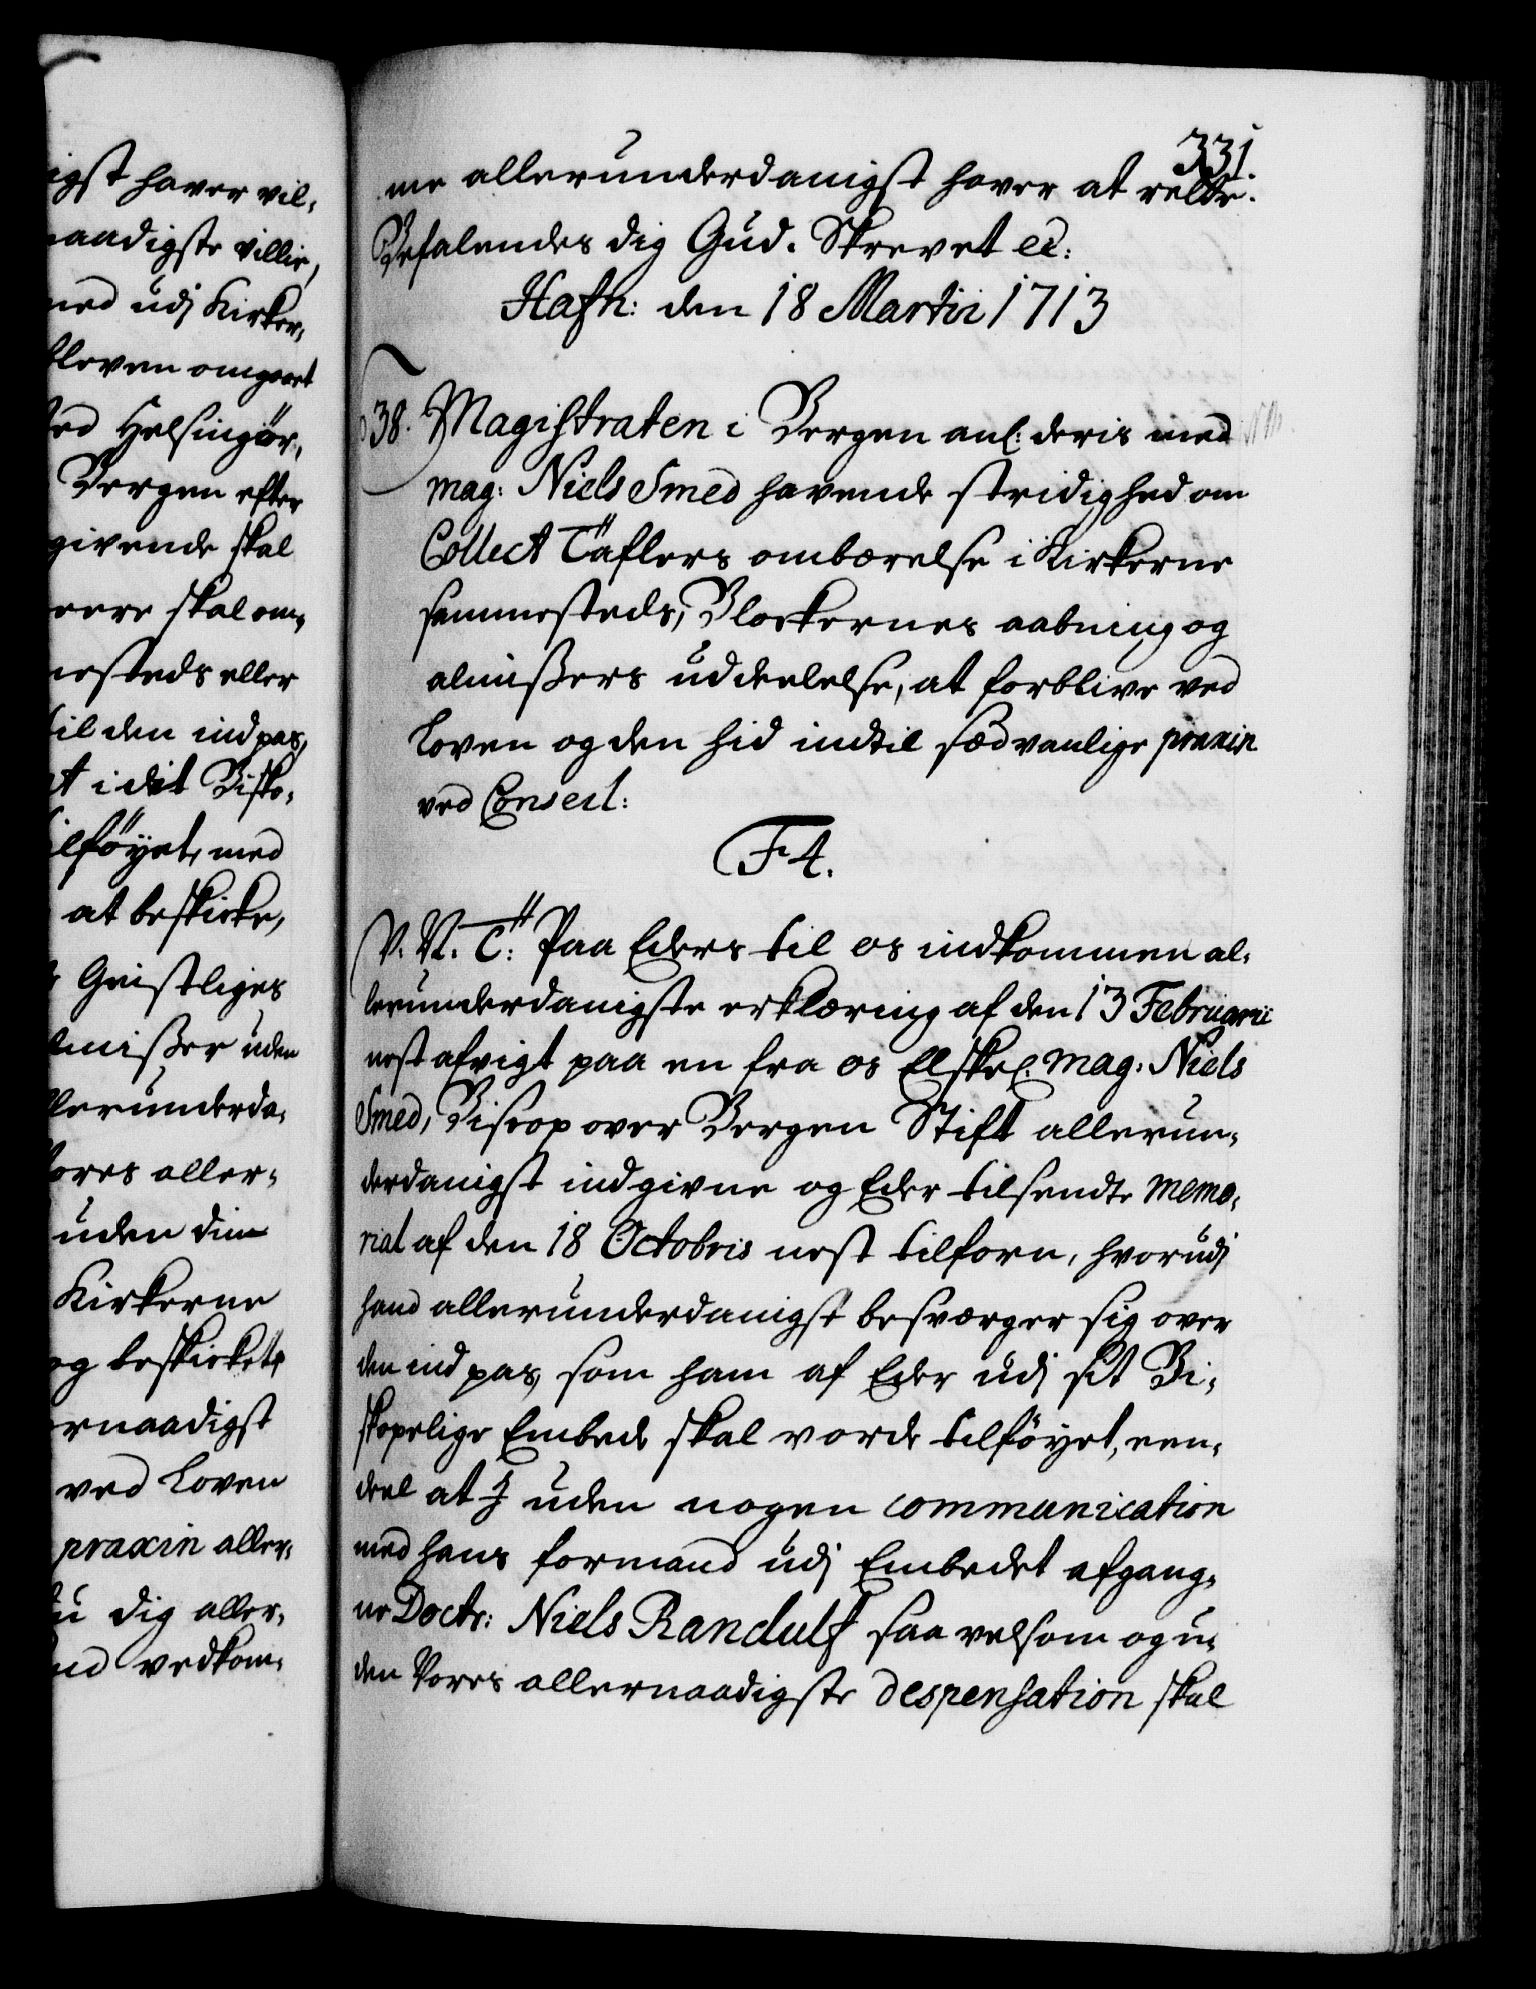 igst haver vil-
naadigste villie,
med udj Kirker-
bleven omgaaet
ved Helsingør,
Bergen efter
givende skal
være skal om-
mesteds eller
til den indpas,
at i dit Bispe-
tilföyet, med
at beskicke,
Geistliges
almisser uden
allerunderda-
Vores aller-
uden din
Kirkerne
og beskickets
ernaadigst
ved Loven
praxin aller-
du dig aller-
vedkom-
331.
me allerunderdanigst haver at rette.
Befalendes dig Gud. Skrevet etc:
Hafn: den 18 Martii 1713
38. Magistraten i Bergen anl: deris med
mag: Niels Smed havende stridighed om
Collect Taflers ombærelse i Kirkerne
sammesteds, Blockernes aabning og
almissers uddeelelse, at forblive ved
Loven og den hid indtil sædvanlige praxin
ved Consect:
F 4.
V. N. T: Paa Eders til os indkommen al-
lerunderdanigste erklæring af den 13 Februarii
nest afvigt paa en fra os Elskel. mag: Niels
Smed, Biscop over Bergen Stift allerun-
derdanigst indgivne og Eder tilsendte memo-
rial af den 18 Octobris nest tilforn, hvorudj
hand allerunderdanigst besværger sig over
den indpas, som ham af Eder udj sit Bi-
skopelige Embede skal vorde tilföyet, een-
deel at I uden nogen communication
med hans formand udj Embedet afgang-
ne Doct: Niels Randulf saa velsom og u-
den Vores allernaadigste despensation skal